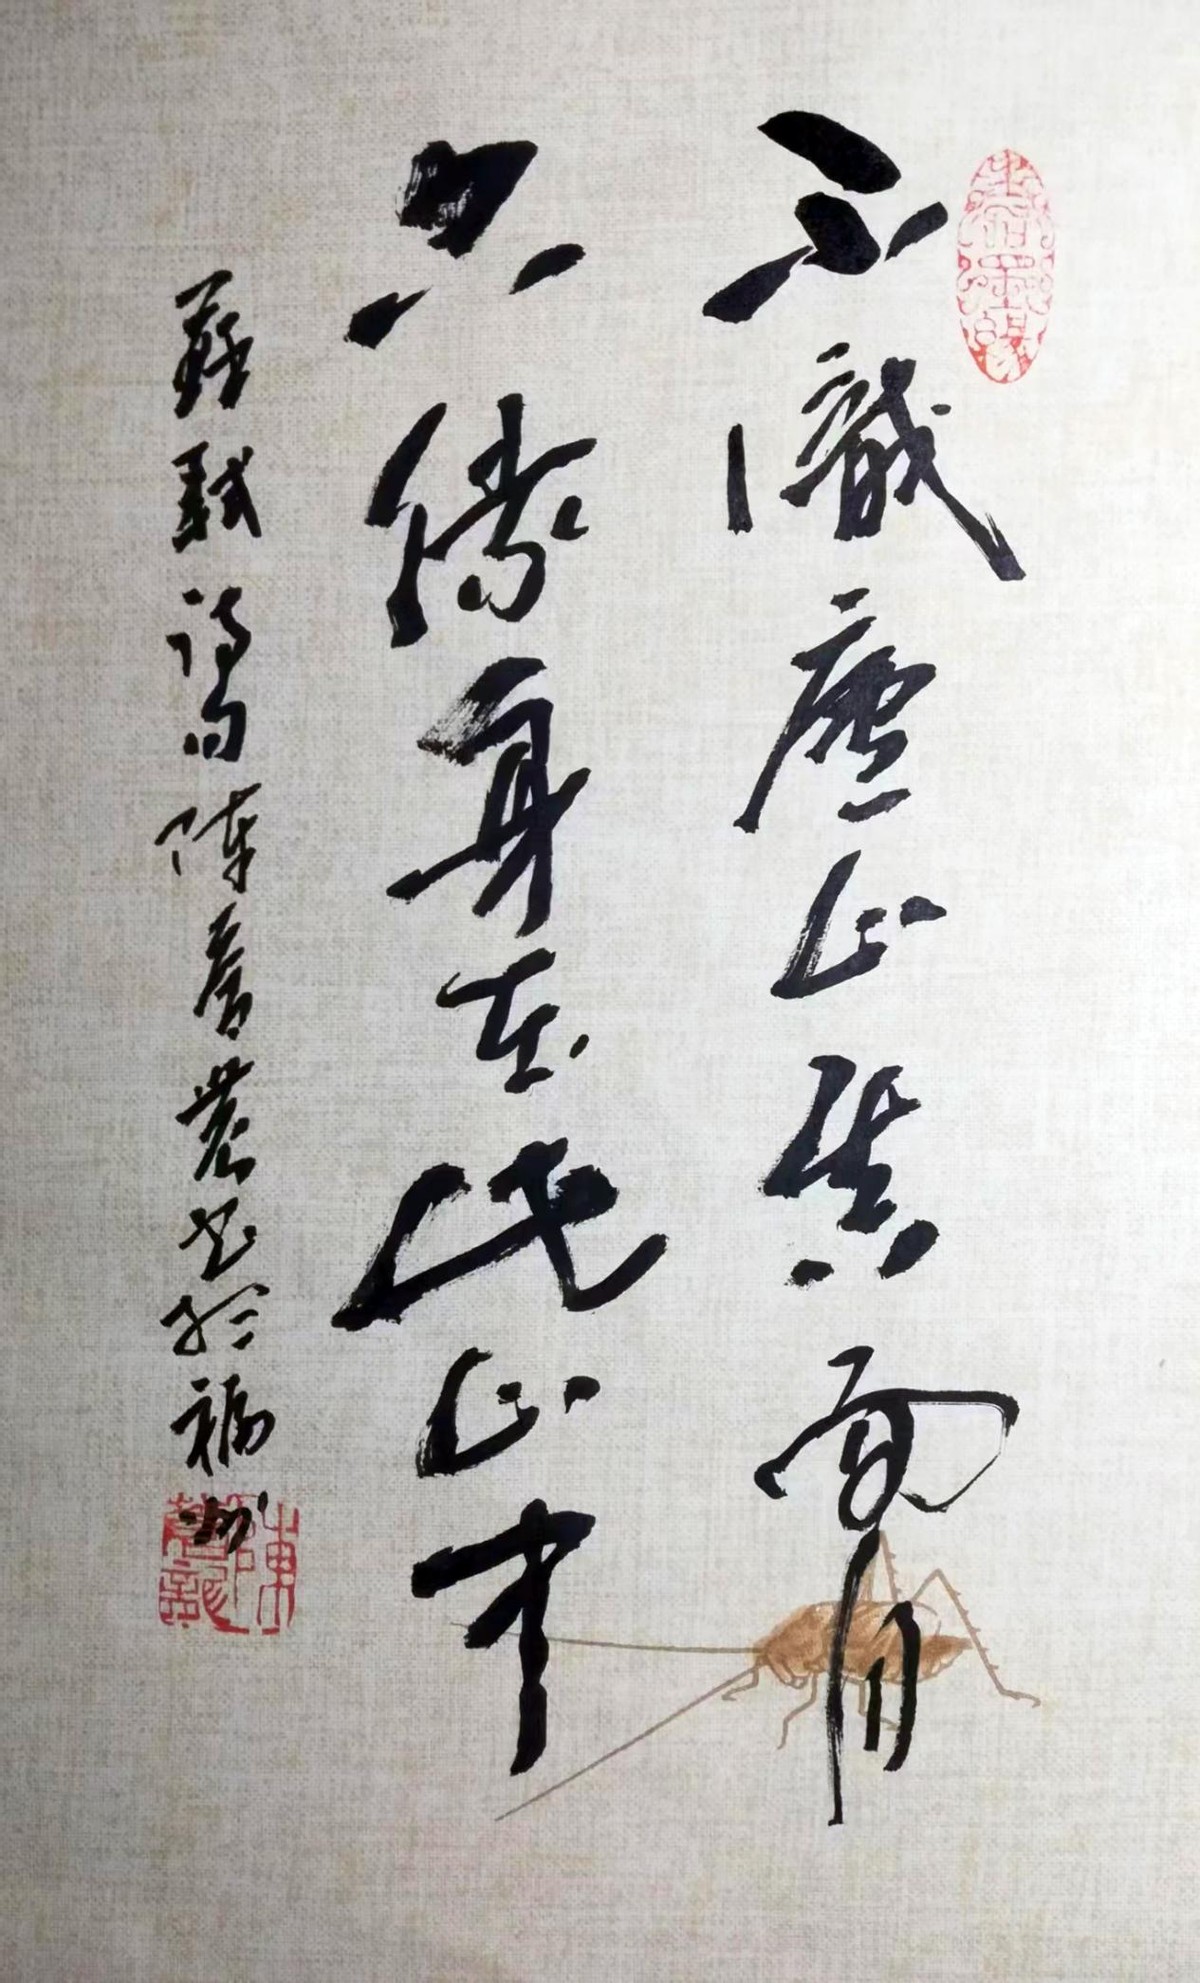 不識廬山真面目
只緣身在此山中
蘇軾詩句陳書於福州